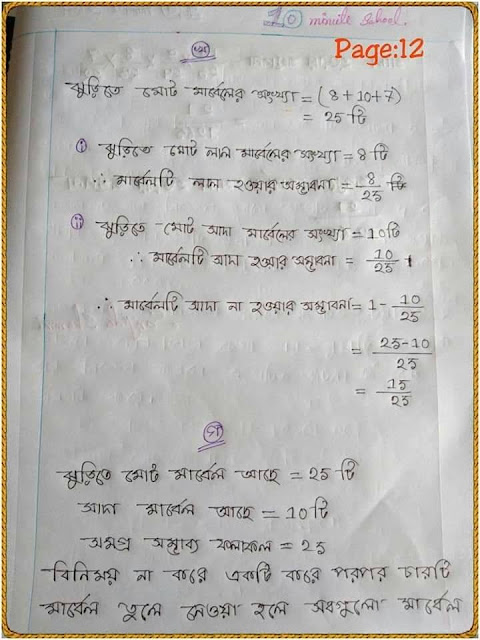 10 minute school.
Page:12
খ
ঝুড়িতে মোট মার্বেলের সংখ্যা = (8+10+7)
= 25 টি
i ঝুড়িতে মোট লাল মার্বেলের সংখ্যা = 8 টি
∴ মার্বেলটি লাল হওয়ার সম্ভাবনা = 8/25 টি
ii ঝুড়িতে মোট সাদা মার্বেলের সংখ্যা = 10 টি
∴ মার্বেলটি সাদা হওয়ার সম্ভাবনা = 10/25 ।
∴ মার্বেলটি সাদা না হওয়ার সম্ভাবনা = 1 - 10/25
= 25-10/25
= 15/25
গ
ঝুড়িতে মোট মার্বেল আছে = 25 টি
সাদা মার্বেল আছে = 10 টি
সমগ্র সম্ভাব্য ফলাফল = 25
বিনিময় না করে একটি করে পরপর চারটি
মার্বেল তুলে নেওয়া হলে সবগুলো মার্বেল